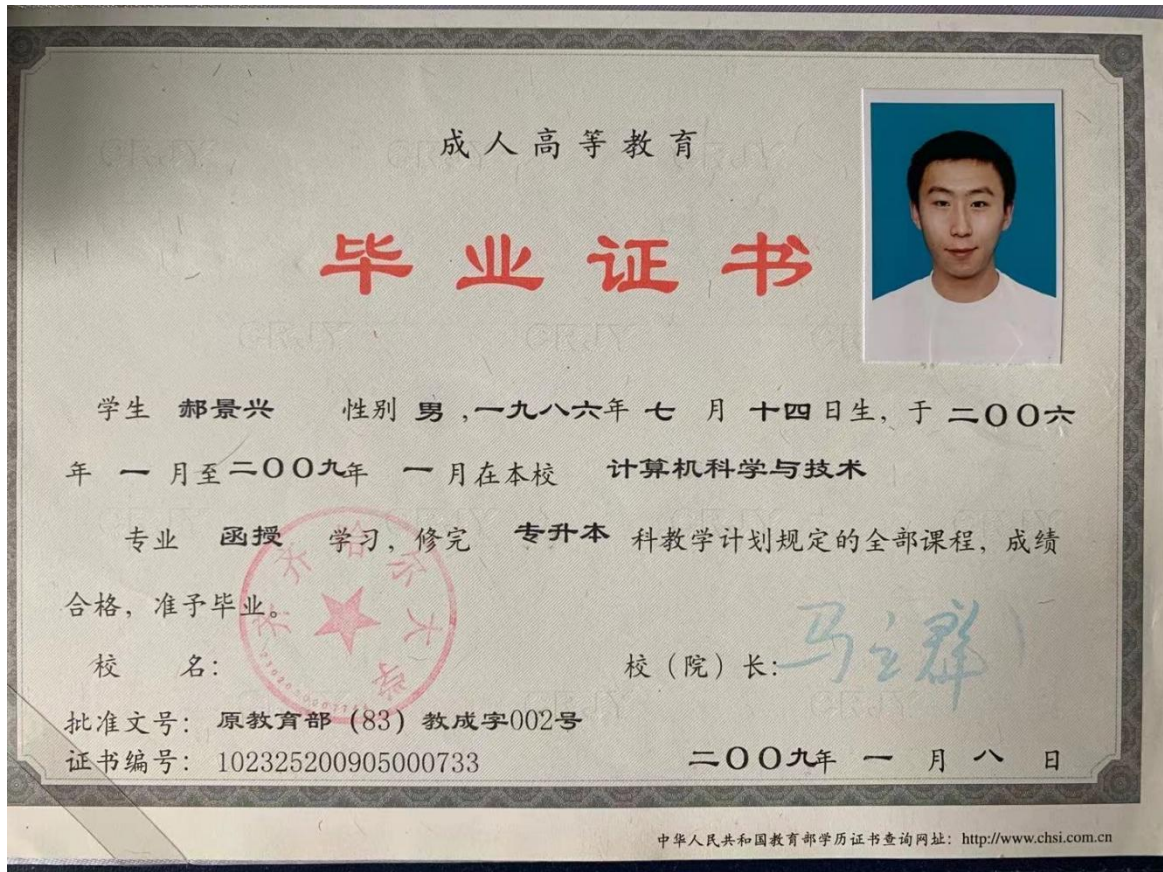 成人高等教育
毕业证书
学生 郝景兴 性别 男 ,一九八六年 七 月 十四日生, 于 二〇〇六
年 一 月至二〇〇九年 一 月在本校 计算机科学与技术
专业 函授 学习, 修完 专升本 科教学计划规定的全部课程, 成绩
合格, 准予毕业。
齐齐哈尔大学
校 名: 校(院)长: 马立群
批准文号: 原教育部(83)教成字002号
证书编号: 102325200905000733 二〇〇九年 一 月 八 日
中华人民共和国教育部学历证书查询网址: http://www.chsi.com.cn